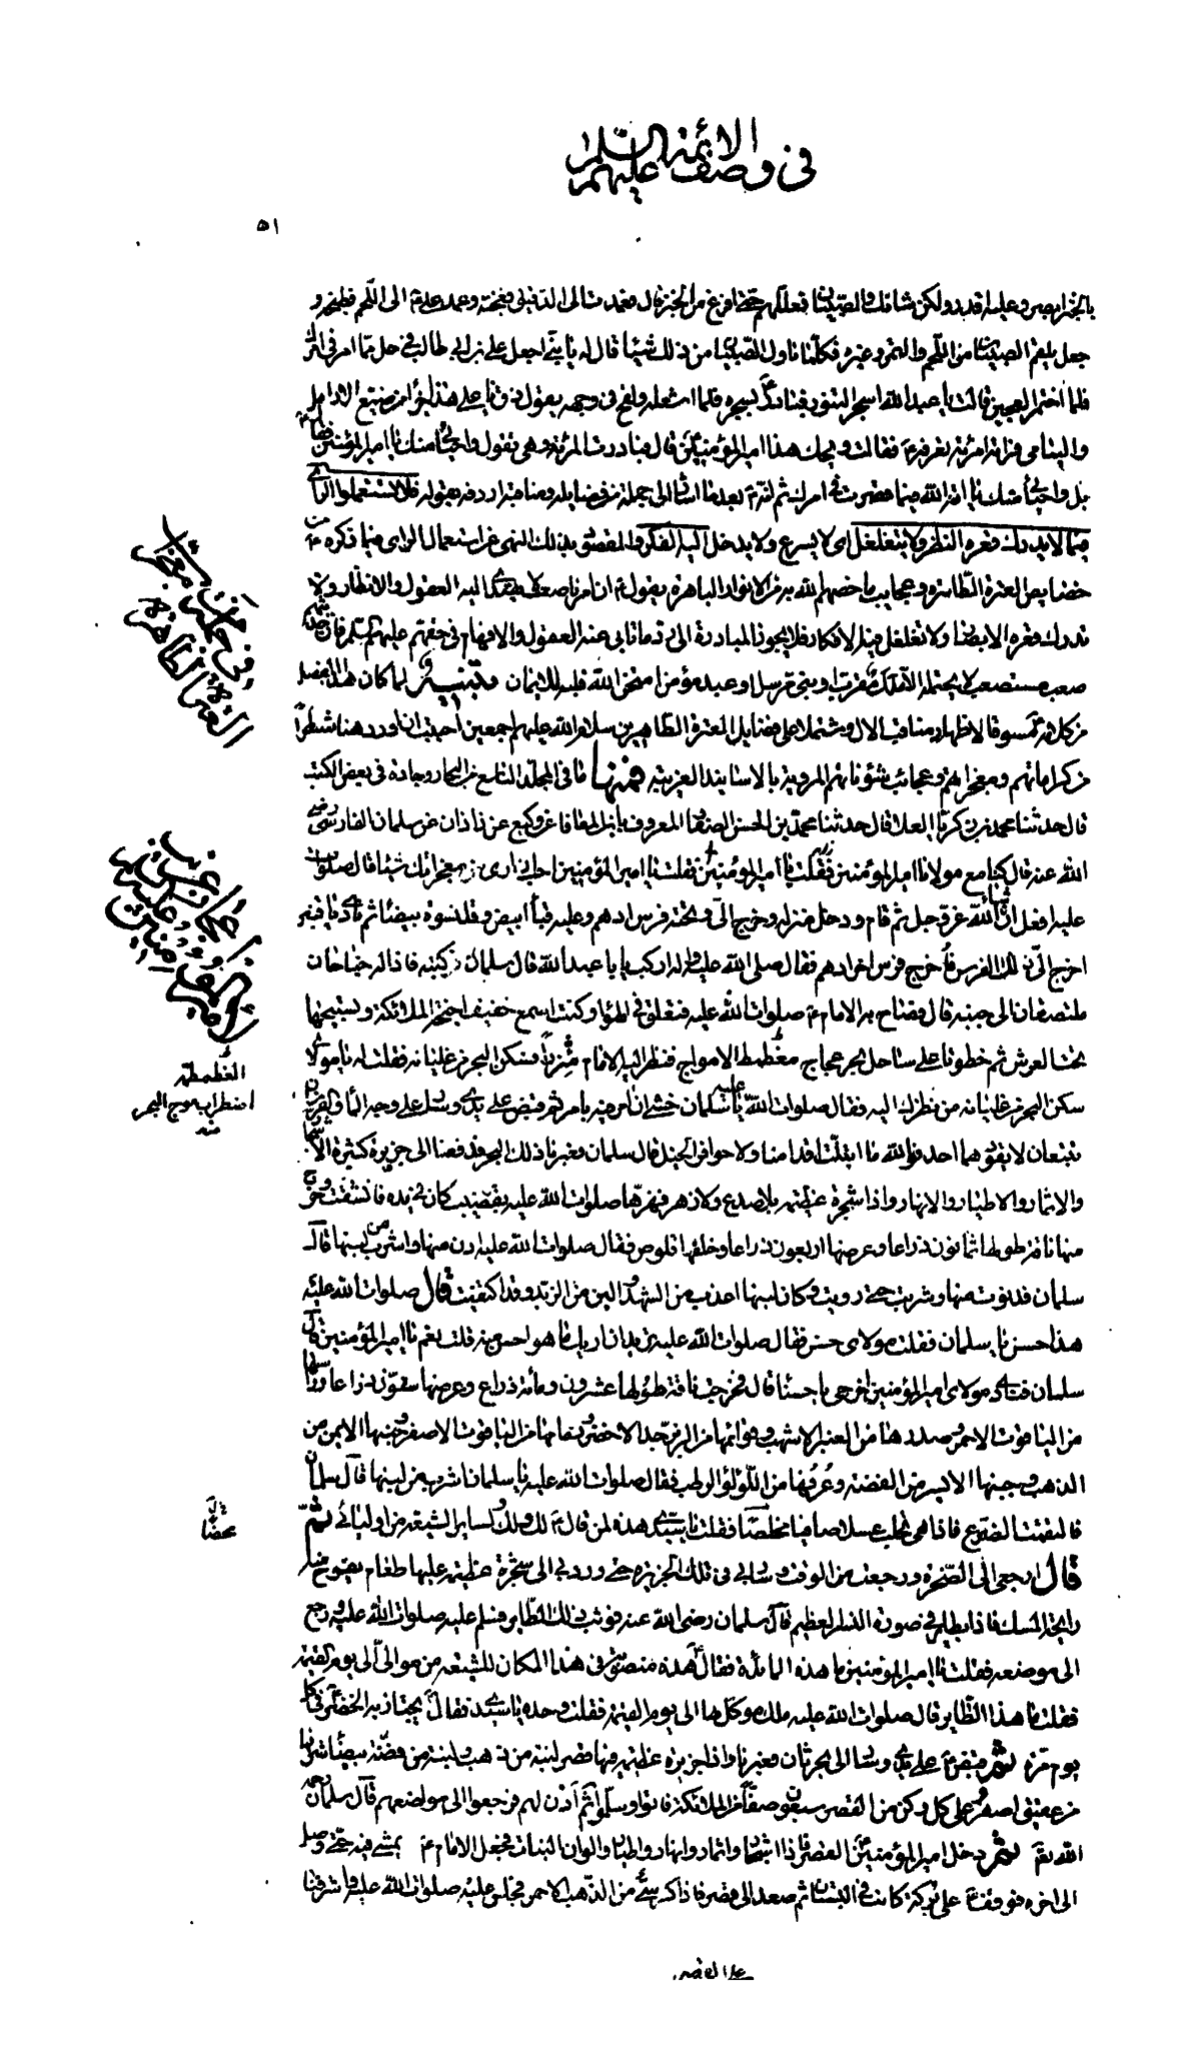 في وصف الائمة عليهم السلام
٥١
بالخبز ابصر وعليه اقدر ولكن شانك والصبيان فعللهم حتى افرغ من الخبز قال فعمدت الى الدقيق فعجنته وعمد علي ع الى اللحم فطبخه و
جعل يلقم الصبيان من اللحم والتمر وغيره فكلما ناول الصبيان من ذلك شيئا قال له يا بني اجعل علي بن ابي طالب في حل مما امر في امرك
فلما اختمر العجين قالت يا عبد الله اسجر التنور فبادر لسجره فلما اشعله ولفح في وجهه يقول ذق يا علي هذا جزاء من ضيع الارامل
واليتامى فراته امرئة تعرفه فقالت ويحك هذا امير المؤمنين قال فبادرت المرئة وهي تقول واحيائي منك يا امير المؤمنين فقال
بل واحيائي منك يا امة الله فيما قصرت في امرك ثم انه ع بعد ما اشار الى جملة من فضايله ومناقبه اردفه بقوله فلا تستعملوا الراي
فيما لا يدرك قعره النظر ولا يتغلغل اي لا يسرع ولا يدخل اليه الفكر والمقصود بذلك النهي عن استعمال الراي فيما ذكره ع من
خصايص العترة الطاهرة وعجايب ما خصهم الله به من الانوار الباهرة يقول ع ان امرنا صعب لا يهتدي اليه العقول والانظار ولا
تدرك قعره الابصار ولا تغلغل فيه الافكار فلا يجوز المبادرة الى رد ما تابى عنه العقول والافهام في حقهم عليهم السلم فان حديثهم
صعب مستصعب لا يحتمله الا ملك مقرب او نبي مرسل او عبد مؤمن امتحن الله قلبه للايمان وتنبيه لما كان هذا الفصل
من كلامه ع مسوقا لاظهار مناقب الال ومشتملا على فضايل العترة الطاهرين سلام الله عليهم اجمعين احببت ان اورد هنا شطرا
من كراماتهم ومعجزاتهم وعجائب شؤناتهم المروية بالاسانيد الغريبة فمنها ما في المجلد التاسع من البحار وجادة في بعض الكتب
قال حدثنا محمد بن زكريا العلا قال حدثنا محمد بن الحسن الصفار المعروف بابن المعافا عن وكيع عن زاذان عن سلمان الفارسي رضي
الله عنه قال كنا مع مولانا امير المؤمنين فقلت يا امير المؤمنين احب ان ارى من معجزاتك شيئا قال صلوات
عليه افعل انشاء الله عز وجل ثم قام ودخل منزله وخرج الي وتحته فرس ادهم وعليه قباء ابيض وقلنسوة بيضاء ثم نادى يا قنبر
اخرج الي ذلك الفرس فاخرج فرس اخر ادهم فقال صلى الله عليه واله اركب يا با عبد الله قال سلمان فركبته فاذا له جناحان
ملتصقان الى جنبه قال فصاح به الامام ع صلوات الله عليه فتعلق في الهواء وكنت اسمع حفيف اجنحة الملائكة وتسبيحها
تحت العرش ثم خطونا على ساحل بحر عجاج مغطمط الامواج فنظر اليه الامام شزرا فسكن البحر من غليانه فقلت له يا مولاي
سكن البحر من غليانه من نظرك اليه فقال صلوات الله عليه يا سلمان خشي ان امر فيه بامر ثم قبض على يدي وسار على وجه الماء والفرسان
تتبعان لا يقودهما احد فوالله ما ابتلت اقدامنا ولا حوافر الخيل قال سلمان فعبرنا ذلك البحر فدفعنا الى جزيرة كثيرة الاشجار
والاثمار والاطيار والانهار واذا شجرة عظيمة بلا صدع ولا زهر فهزها صلوات الله عليه بقضيب كان في يده فانشقت وخرج
منها ناقة طولها ثمانون ذراعا وعرضها اربعون ذراعا وخلفها قلوص فقال صلوات الله عليه ادن منها واشرب من لبنها قال
سلمان فدنوت منها وشربت حتى رويت وكان لبنها اعذب من الشهد والين من الزبد وقد اكتفيت قال صلوات الله عليه
هذا حسن يا سلمان فقلت مولاي حسن فقال صلوات الله عليه تريد ان اريك ما هو احسن منه قلت نعم يا امير المؤمنين قال
سلمان فنادى مولاي امير المؤمنين اخرجي يا حسناء قال فخرجت ناقة طولها عشرون ومائة ذراع وعرضها ستون ذراعا وراسها
من الياقوت الاحمر وصدرها من العنبر الاشهب وقوائمها من الزبرجد الاخضر وزمامها من الياقوت الاصفر وجنبها الايمن من
الذهب وجنبها الايسر من الفضة وعرفها من اللؤلؤ الرطب فقال صلوات الله عليه يا سلمان اشرب من لبنها قال سلمان
فالتقمت الضرع فاذا هي تحلب عسلا صافيا مخلصا فقلت يا سيدي هذه لمن قال ع لك ولك ولساير الشيعة من اوليائي ثم
قال ارجعي الى الصخرة ورجعت من الوقت وسار بي في تلك الجزيرة حتى ورد بي الى شجرة عظيمة عليها طعام يفوح منه
رايحة المسك فاذا بطاير في صورة النسر العظيم قال سلمان رضي الله عنه فوثب ذلك الطاير فسلم عليه صلوات الله عليه ورجع
الى موضعه فقلت يا امير المؤمنين ما هذه المائدة فقال هذه منصوبة في هذا المكان للشيعة من موالي الى يوم القيمة
فقلت ما هذا الطاير قال صلوات الله عليه ملك موكل بها الى يوم القيمة فقلت وحده يا سيدي فقال يجتاز به الخضر في كل
يوم مرة ثم قبض ع على يدي وسار الى بحر ثان فعبرنا واذا جزيرة عظيمة فيها قصر لبنة من ذهب ولبنة من فضة بيضاء شرفها
من عقيق اصفر وعلى كل ركن من القصر سبعون صفا من الملائكة فاتوا وسلموا ثم اذن لهم فرجعوا الى مواضعهم قال سلمان رحمه
الله تعالى ثم دخل امير المؤمنين القصر فاذا اشجار واثمار وانهار واطيار والوان النبات فجعل الامام ع يمشي فيه حتى وصل
الى اخره فوقف ع على بركة كانت في البستان ثم صعد الى قصر فاذا كرسي من الذهب الاحمر فجلس عليه صلوات الله عليه واشرفنا
على القصر
العترة الطاهرة
الغطمطة
اضطراب موج البحر
منه
محضا